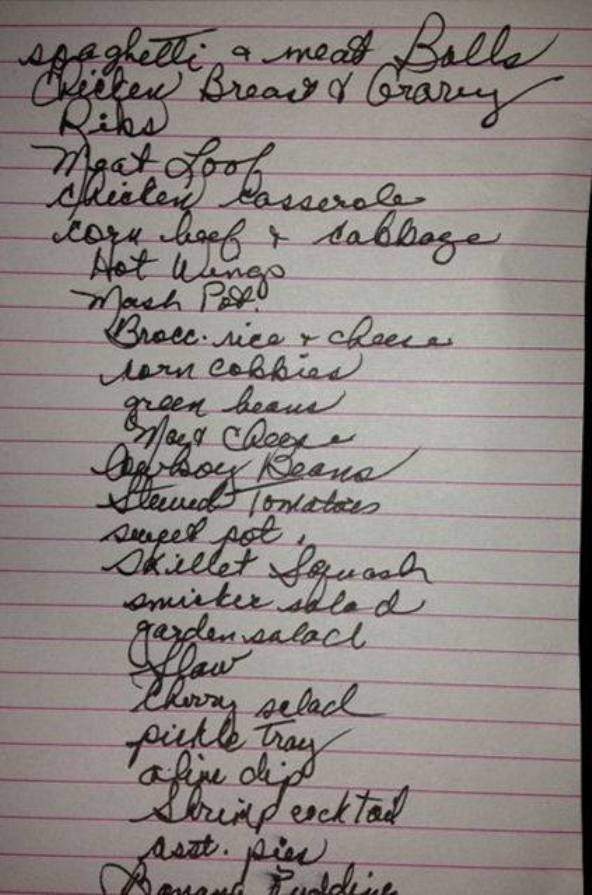 spaghetti & meat Balls
Chicken Breast & Gravy
Ribs
Meat Loof
chicken casserole
corn beef & cabbage
Hot Wings
Mash Pot.
Brocc. rice & cheese
corn cobbies
green beans
Mac & Cheese
Cowboy Beans
Stewed Tomatoes
sweet pot.
Skillet Squash
salad
garden salad
Slaw
Cherry salad
pickle Tray
dip
Shrimp cocktail
asst. pies
Banana Pudding